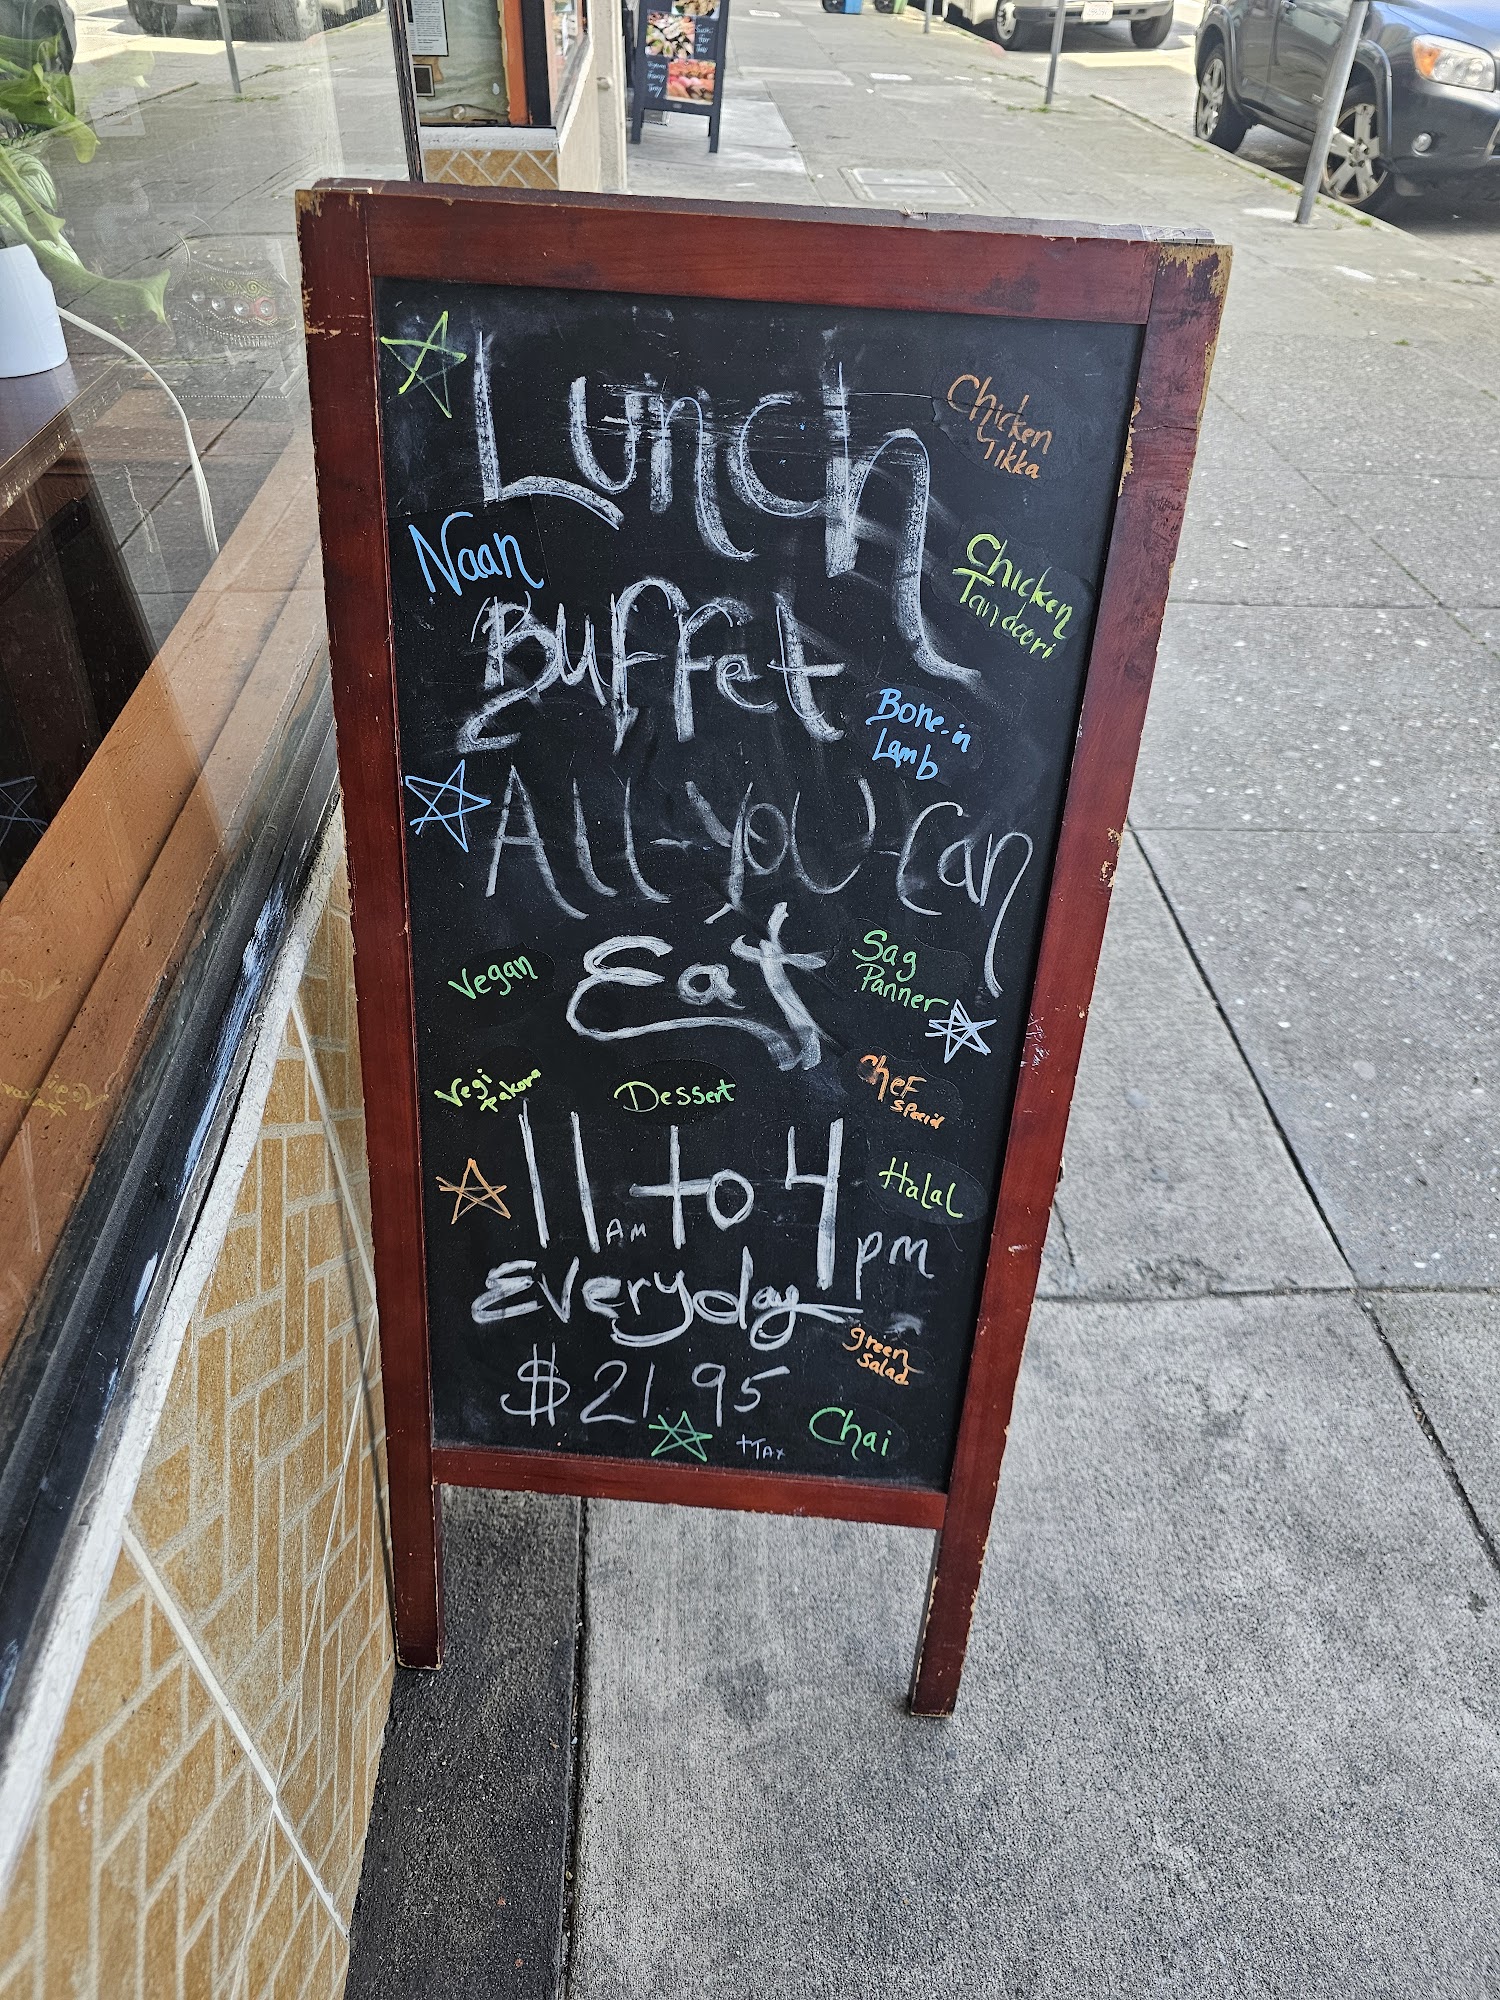 Lunch
Chicken
Tikka
Naan
Chicken
Tandoori
Buffet
Bone-in
Lamb
All-you-Can
Eat
Vegan
Sag
Panner
Vegi
pakora
Dessert
Chef
special
11 AM to 4 pm
Halal
Everyday
green
Salad
$21.95
+TAX
Chai